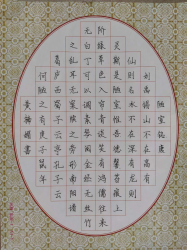 陋室铭唐
刘禹锡山不在高有
仙则名水不在深有龙则
灵斯是陋室惟吾德馨苔痕上
阶绿草色入帘青谈笑有鸿儒往来
无白丁可以调素琴阅金经无丝竹
之乱耳无案牍之劳形南阳诸
葛庐西蜀子云亭孔子云
何陋之有庚子鼠年
黄书